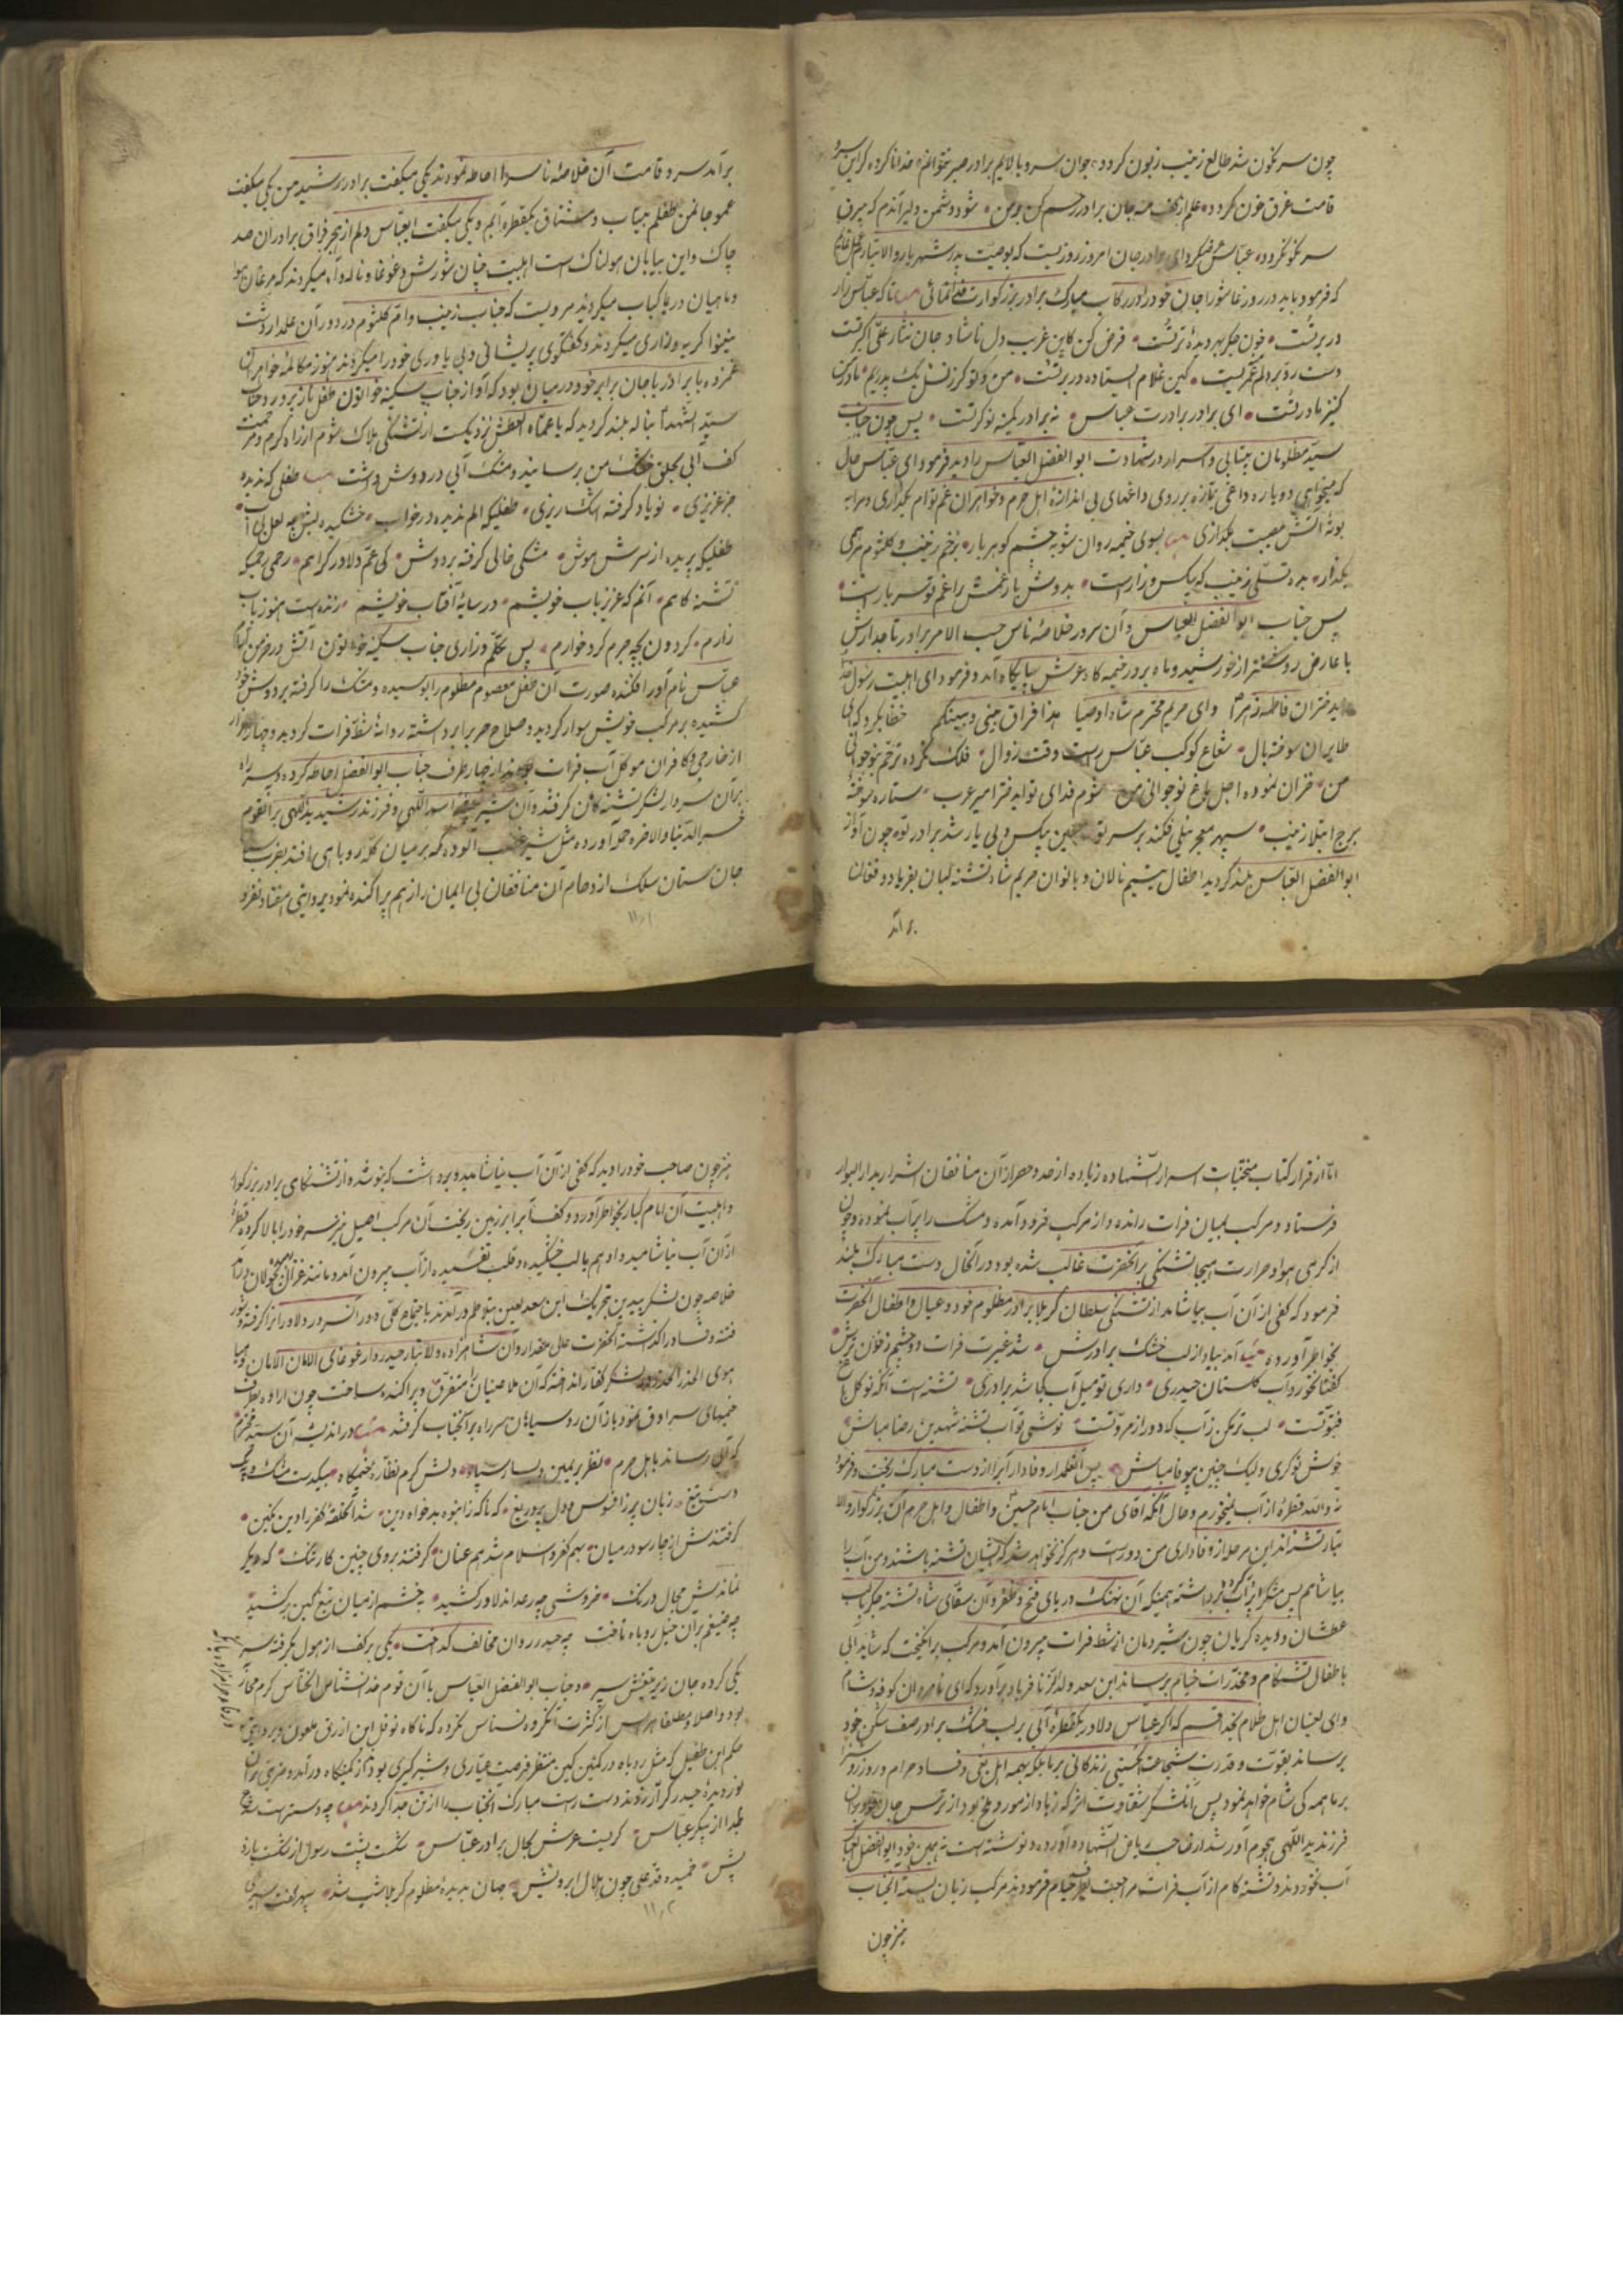 چون سرنگون شد طالع زینب زبون کردد جوان سرو بالایم برادر صبر نتوانم خدا ناکرده کر این سرو
قامت غرق خون کردد علم از کف منه جان برادر رحم کن بر من شود دشمن دلیر آندم که بیرق
سرنکون کردد عباس عرض کرد ای خواهر جان امروز روزیست که بوصیت پدر شهریار والاتبار عمل نمایم
که فرمود باید در روز عاشورا جان خود را در رکاب مبارک برادر بزرکوارت فدا نمائی تا که عباس زار
در بر تست خون جکر بهر دیده تر تست فرض کن کاین غریب دل ناشاد جان نثار علی اکبر تست
دست رد بر دلم مکر لیست کین غلام ایستاده در بر تست من و تو کرز نسل یک پدریم مادرم
کنیز مادر تست ای برادر برادرت عباس نه برادر کمینه نوکر تست پس چون جناب
سید مظلومان بیتابی و اسرار در شهادت ابوالفضل العباس را دید فرمود ای عباس حال
که میخواهی دوباره داغی بتازه بر روی داغهای بی اندازه اهل حرم و خواهران غم توام بگذاری و مرا به
بوته آتش مصیبت بگدازی بسوی خیمه روان شو به چشم کوهربار بزخم زینب و کلثوم مرهمی
بکذار بده تسلی زینب که بیکس و زار است بدوش بار غمش را غم تو سربار است
پس جناب ابوالفضل العباس و آن سرور خلاصه ناس حسب الامر برادر تاجدارش
با عارض روشنتر از خورشید و ماه بر در خیمه گاه عرش پایگاه آمد و فرمود ای اهلبیت رسول خدا
و ای دختران فاطمه زهرا و ای مریم محترم شاه اوصیا هذا فراق بینی و بینکم خطاب کرد که ای
طایران سوخته بال شعاع کوکب عباس راست وقت زوال فلک نکرده ترحم بنوجوانی
من خزان نموده اجل باغ نوجوانی من شوم فدای تو ای دختر امیر عرب ستاره سوخته
برج ابتلا زینب سپهر معجر نیلی فکند بر سر تو حسین بیکس و بی یار شد برادر تو چون آواز
ابوالفضل العباس بلند کردید اطفال یتیم نالان و بانوان حریم شاه تشنه لبان بفریاد و فغان
بر آمد
برآمد سرو قامت آن خلاصه ناس را احاطه نمودند یکی میکفت برادر رشید من یکی میکفت
عموجان من طفلم بیتاب و مشتاق یکقطره آبم و یکی میکفت ابوالعباس دلم از هجر فراق برادران صد
چاک و این بیابان هولناک است اهلبیت چنان شورش و غوغا و ناله و آه میکردند که مرغان هوا
و ماهیان دریا کباب میکردید مرویست که جناب زینب و ام کلثوم در دور آن علمدار دشت
نینوا کریه و زاری میکردند و کفتکوی پریشانی و بی یاوری خود را میکردند هنوز مکالمه خواهران
غمزده با برادر با جان برابر خود در میان بود که آواز جناب سکینه خواتون طفل ناز پرور و جناب
سید الشهدا بناله بلند کردید که یا عماه العطش نزدیکست از تشنگی هلاک شوم از راه کرم و مرحمت
کف آبی بحلق خشک من برسانید و مشک آبی در دوش داشت طفلی که ندیده
جز عزیزی نو یاد کرفته اشک ریزی طفلیکه الم ندیده در خواب خشکیده لبش چه لعل بی آب
طفلیکه پریده از سرش هوش مشکی خالی کرفته بر دوش کی عم دلاور کرامم رحمی که
تشنه کامم آنم که عزیز باب خویشم در سایه آفتاب خویشم زنده است هنوز باب
زارم کردون بچه جرم کرد خوارم پس تکلم و زاری جناب سکینه خواتون آتش در خرمن
عباس نام آور افکنده صورت آن طفل معصوم مظلوم را بوسیده و مشک را کرفته بر دوش خود
کشیده بر مرکب خویش سوار کردید و صلاح حرب را برداشته روانه شط فرات کردید و چهار هزار
از خارجی و کافران موکل آب فرات بودند از چهار طرف جناب ابوالفضل احاطه کرده و سر راه
بر آن سردار لشکر تشنه کان کرفتند و آن شیر بیشه اسد اللهی و فرزند رشید ید اللهی بر آن قوم
خسر الدنیا و الاخره حمله آورده مثل شیر غضب آلوده که بر میان کله روباهی افتد بضرب
جان ستان سلک ازدحام آن منافقان بی ایمان را از هم پراکنده نمود بروایتی هفتاد نفر و
۱۱۰۱
اما از قرار کتاب منتخبات اسرار الشهاده زیاده از حد و حصر از آن منافقان اشرار بدار البوار
فرستاد و مرکب بمیان فرات رانده و از مرکب فرود آمده و مشک را پر آب نموده و چون
از کرمی هوا و حرارت هیجا تشنکی بر آنحضرت غالب شده بود در آنحال دست مبارک بلند
فرمود که کفی از آن آب بیاشامد از تشنکی سلطان کربلا برادر مظلوم خود و عیال و اطفال آنحضرت
بخاطر آورده آمد بیاد از لب خشک برادرش شد غیرت فرات دو چشم ز خون ترش
کفتا نخورد آب کلستان حیدری داری تو میل آب کجا شد برادری تشنه است آنکه نوکل باغ
فتوتست لب تر مکن ز آب که دور از مروتست نوشی تو آب تشنه شهدین رضا مباش
خوش نوکری ولیک چنین بیوفا مباش پس آن علمدار وفادار آب را از دست مبارک ریخت و فرمود
نه والله قطره از آب نمیخورم و حال آنکه آقای من جناب امام حسین و اطفال و اهل حرم آن بزرکوار والا
تبار تشنه اند این مرحله از وفاداری من دور است و هرکز نخواهد شد که ایشان تشنه باشند و من آب را
بیاشامم پس مشک پر آب را برداشته همینکه آن نهنک دریای فتح و ظفر و آن سقای شاه تشنه جکر بالب
عطشان و دیده کریان چون شیر دمان از شط فرات بیرون آمد و مرکب برانکیخت که شاید آبی
باطفال تشنکام و مخدرات خیام برساند ابن سعد ولد الزنا فریاد برآورد که ای نامردان کوفه و شام
و ای لعینان اهل ظلام بخدا قسم که اکر عباس دلاور یکقطره آبی بر لب خشک برادر صف شکن خود
برساند بقوت و قدرت شجاعت کستی زندکانی بر ما بلکه بهمه اهل بغی و فساد حرام و روز روشن را
بر ما همه کی شام خواهد نمود پس آن لشکر شقاوت اثر که زیاد از مور و ملخ بود از ترس جان خود بر آن
فرزند ید اللهی هجوم آور شدند صاحب ریاض الشهاده آورده و نوشته است نه همین خود ابوالفضل العباس
آب نخوردند و تشنه کام از آب فرات مراجعت بطرف خیام فرمودند مرکب زبان بسته آنجناب
نیز چون
نیز چون صاحب خود را دید که کفی از آن آب نیاشامید و برداشت که بنوشد و از تشنه کامی برادر بزرکوار
و اهلبیت آن امام کبار بخاطر آورد و کف آب را بر زمین ریخت آن مرکب اصیل نیز سر خود را بالا کرده قطره
از آن آب نیاشامید و او هم بالب خشکیده و قلب تفتیده از آب بیرون آمد و مانند غزال بجولان درآمد
خلاصه چون لشکر بیدین بتحریک ابن سعد لعین بتلاطم درآمدند باجتماع کلی دور آن سرور دلاور را کرفته و شور
فتنه و فساد را کذاشته آنحضرت علی مقدار و آن شاهزاده والا تبار حیدر وار غوغای الامان الامان و هیاهوی
هوی الحذر الحذر در لشکر کفار انداخته که آن ملاعینان را متفرق و پراکنده ساخت چون اراده بطرف
خیمهای سرادق نمود باز آن روسیاهان سر راه بر آنجناب کرفتند در اندیشه آن سید محترم
که آبی رساند باهل حرم نظر بر یمین و یسار سپاه دلش کرم نظاره خیمه گاه بیکدست مشک و بیک
دست تیغ زبان پر ز افسوس و دل پر دریغ که ناکه ز انبوه بدخواه دین شد آنحلقه کفر را دین نکین
کرفتندش از چار سو در میان بهم کفر و اسلام شد هم عنان کرفتند بر وی چنین کار تنک که دیکر
نماندش مجال درنک خروشی چه رعد اندلاور کشید بخشم از میان تیغ کین برکشید
چه ضیغم بر آن خیل روباه تافت چه حیدر روان مخالف کداخت یکی بر کف از هول بکرفته سر
یکی کرده جان زیر تیغش سپر و جناب ابوالفضل العباس با آن قوم خناس کرم محاربه
بود و اصلا و مطلقا هراس از کثرت آنکروه نسناس نکرده که ناکاه نوفل ابن ازرق ملعون و بروایتی
حکم ابن طفیل که مثل روباه در کمین کین منتظر فرصت عیاری و شیر کیری بود از کمینکاه درآمد و ضربتی بر آن
نور دیده حیدر کرار زدند دست راست مبارک آنجناب را از تن جدا کردند چه دست راست شد
جدا از پیکر عباس کریست عرش بحال برادر عباس شکست پشت رسول از شکست بازو
یش خمیده قد علی چون هلال ابرویش جهان بدیده مظلوم کربلا شب شد سپهر کفت اسیری
۱۱۰۲